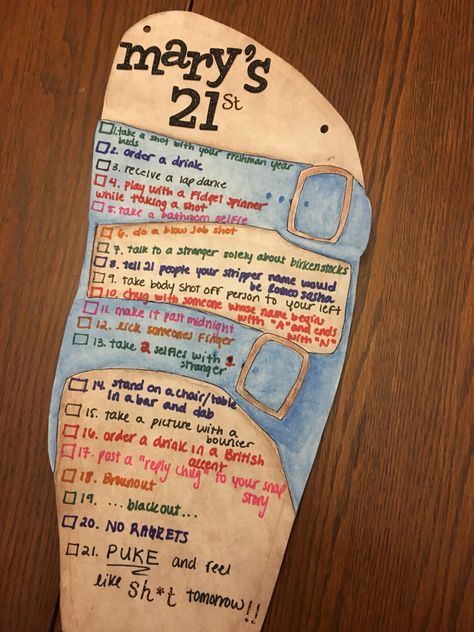 mary's
21st
1. take a shot with your freshman year
buds
2. order a drink
3. receive a lap dance
4. play with a Fidget spinner
while taking a shot
5. take a bathroom selfie
6. do a blow job shot
7. talk to a stranger solely about birkenstocks
8. tell 21 people your stripper name would
be Romeo Sasha
9. take body shot off person to your left
10. chug with someone whose name begins
with "A" and ends
with "N"
11. make it past midnight
12. lick someones finger
13. take 2 selfies with 1
stranger
14. stand on a chair/table
in a bar and dab
15. take a picture with a
bouncer
16. order a drink in a British
accent
17. post a "reply chug" to your snap
story
18. Brownout
19. ...blackout...
20. NO RAGRETS
21. PUKE and feel
like sh*t tomorrow!!